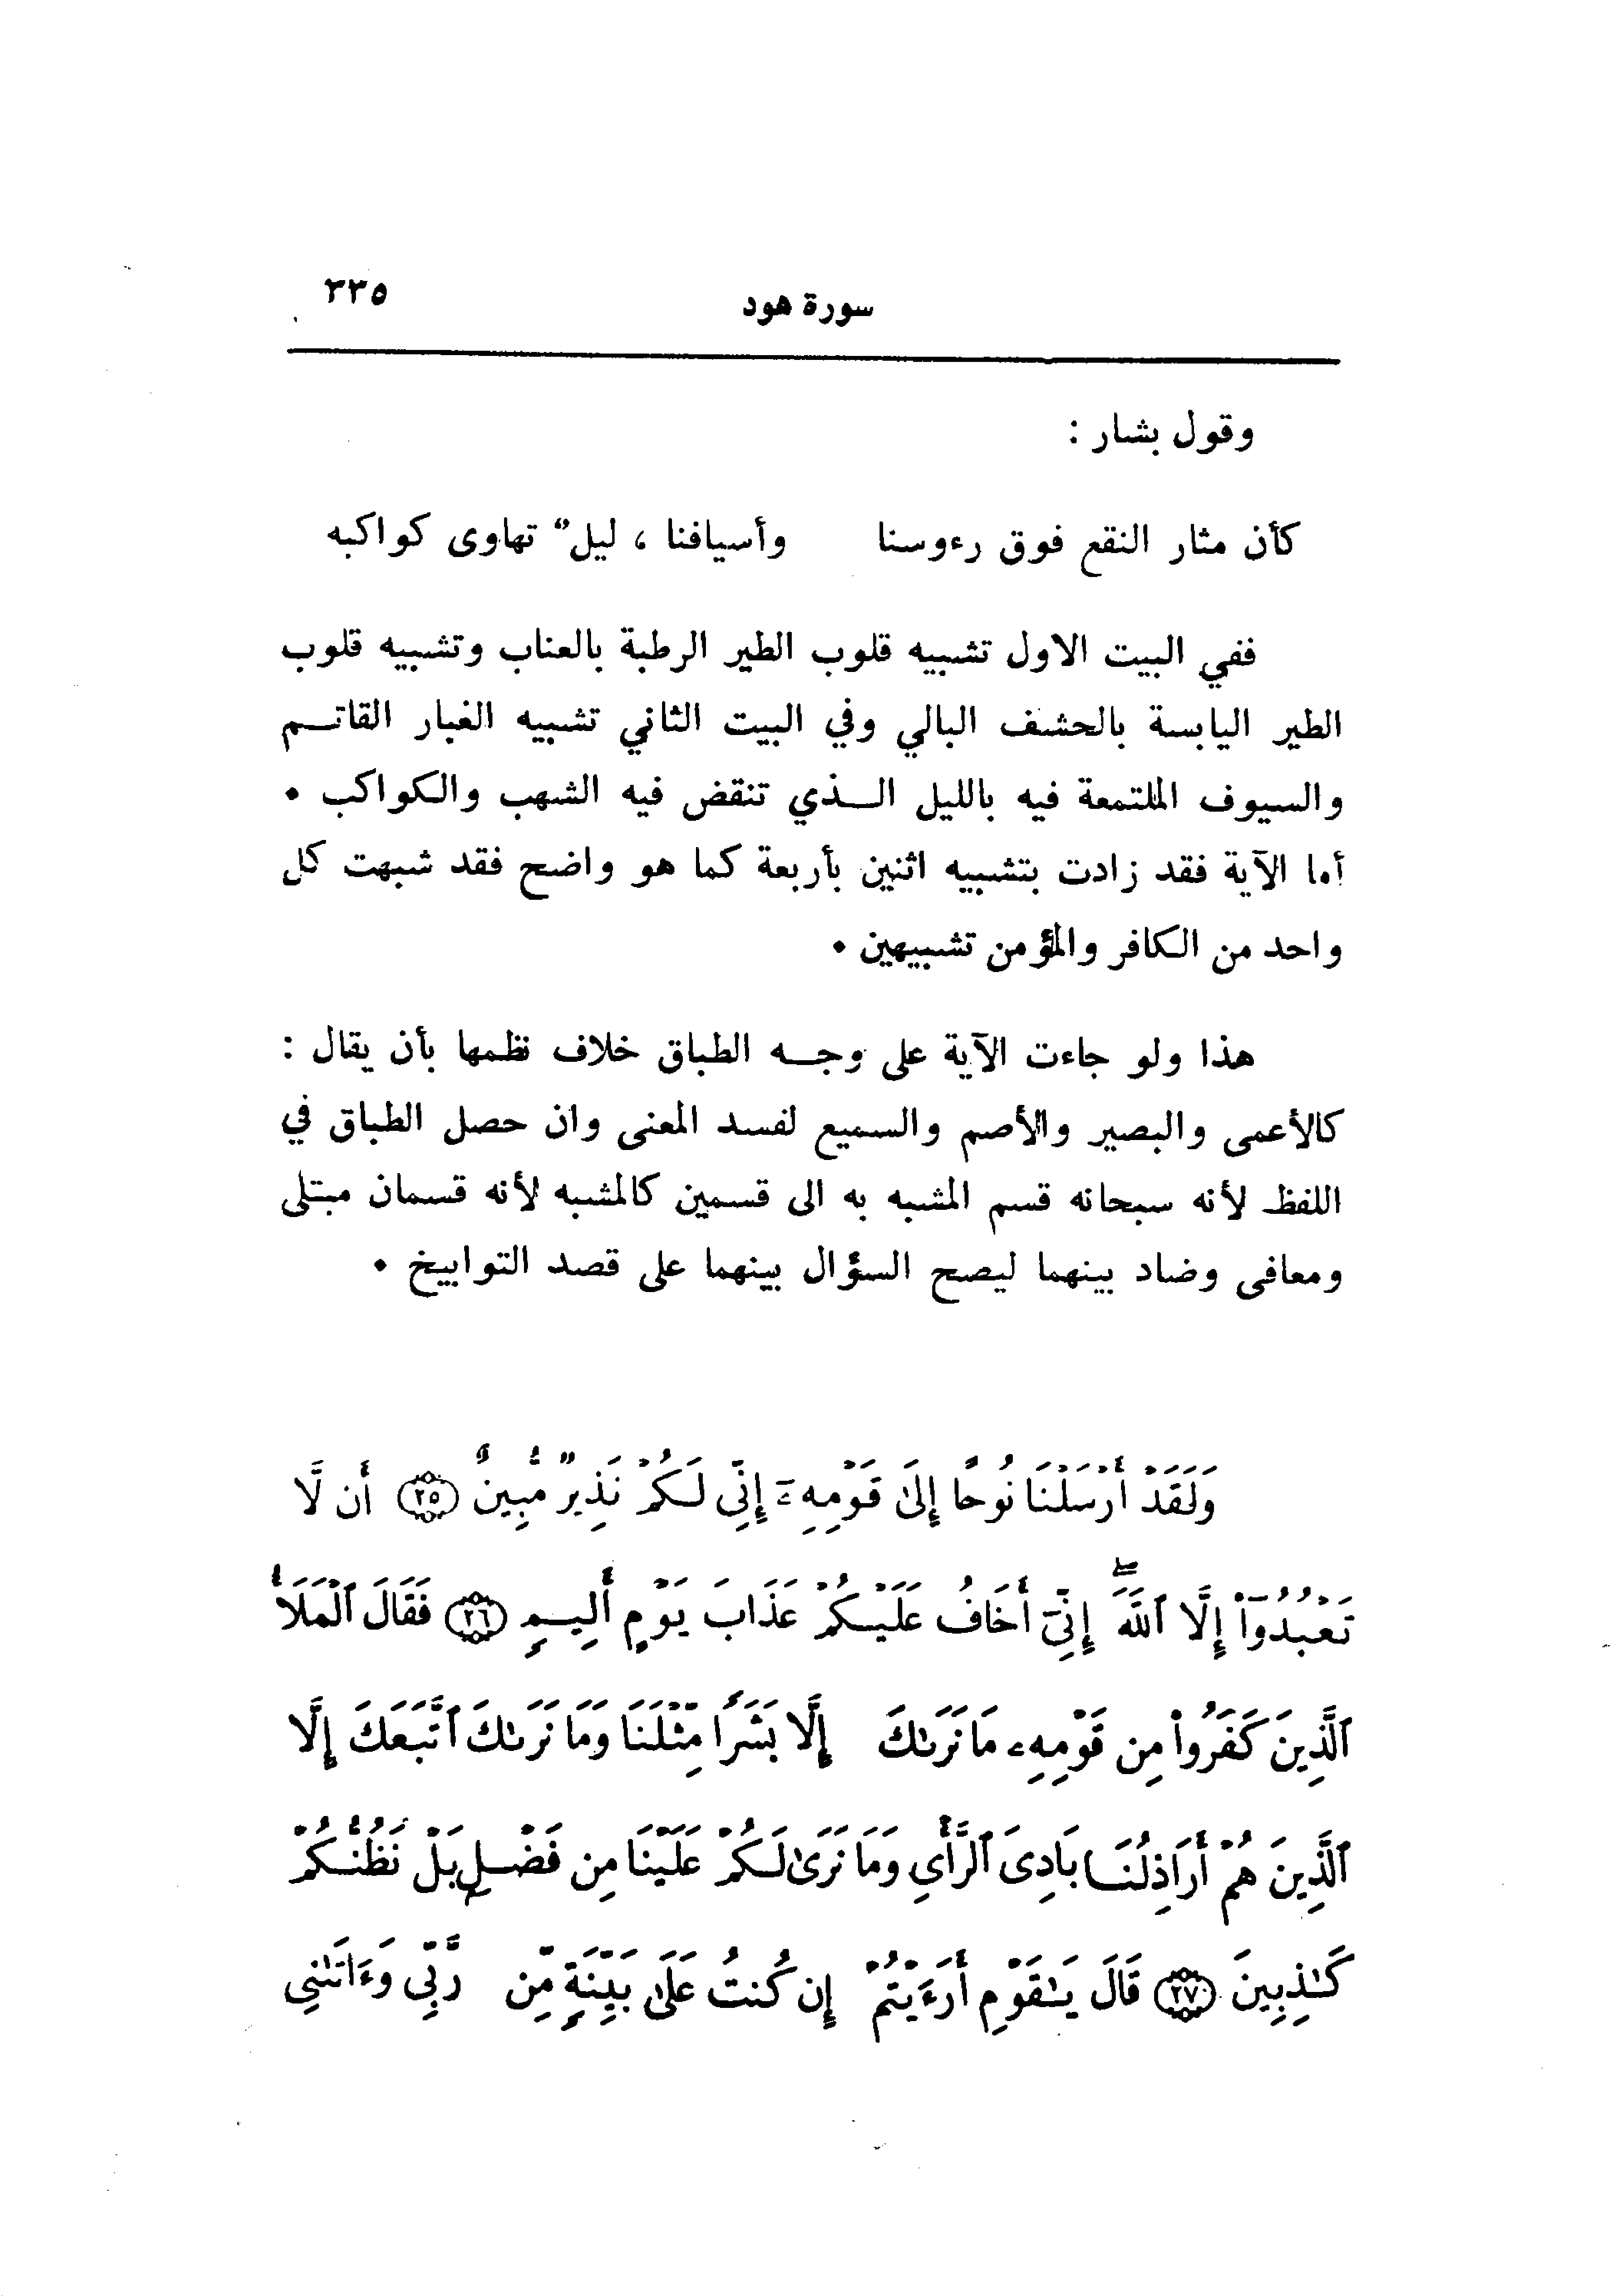 سورة هود ٣٣٥
وقول بشار :
كأن مثار النقع فوق رءوسنا وأسيافنا ، ليلٌ تهاوى كواكبه
ففي البيت الاول تشبيه قلوب الطير الرطبة بالعناب وتشبيه قلوب
الطير اليابسة بالحشف البالي وفي البيت الثاني تشبيه الغبار القاتم
والسيوف الملتمعة فيه بالليل الذي تنقض فيه الشهب والكواكب .
أما الآية فقد زادت بتشبيه اثنين بأربعة كما هو واضح فقد شبهت كل
واحد من الكافر والمؤمن تشبيهين .
هذا ولو جاءت الآية على وجه الطباق خلاف نظمها بأن يقال :
كالأعمى والبصير والأصم والسميع لفسد المعنى وان حصل الطباق في
اللفظ لأنه سبحانه قسم المشبه به الى قسمين كالمشبه لأنه قسمان مبتلى
ومعافى وضاد بينهما ليصح السؤال بينهما على قصد التوابيخ .
وَلَقَدْ أَرْسَلْنَا نُوحًا إِلَىٰ قَوْمِهِۦٓ إِنِّي لَكُمْ نَذِيرٌ مُّبِينٌ ٢٥ أَن لَّا
تَعْبُدُوٓا۟ إِلَّا ٱللَّهَ ۖ إِنِّىٓ أَخَافُ عَلَيْكُمْ عَذَابَ يَوْمٍ أَلِيمٍ ٢٦ فَقَالَ ٱلْمَلَأُ
ٱلَّذِينَ كَفَرُوا۟ مِن قَوْمِهِۦ مَا نَرَىٰكَ إِلَّا بَشَرًا مِّثْلَنَا وَمَا نَرَىٰكَ ٱتَّبَعَكَ إِلَّا
ٱلَّذِينَ هُمْ أَرَاذِلُنَا بَادِىَ ٱلرَّأْىِ وَمَا نَرَىٰ لَكُمْ عَلَيْنَا مِن فَضْلٍ بَلْ نَظُنُّكُمْ
كَـٰذِبِينَ ٢٧ قَالَ يَـٰقَوْمِ أَرَءَيْتُمْ إِن كُنتُ عَلَىٰ بَيِّنَةٍ مِّن رَّبِّى وَءَاتَىٰنِى